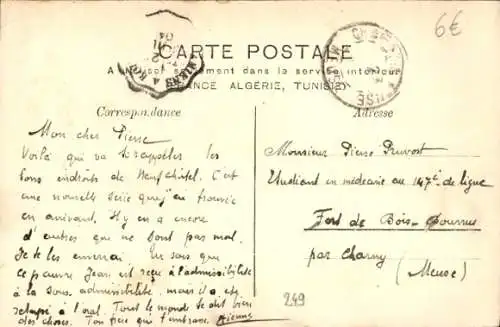 6€
CARTE POSTALE
A n'utiliser seulement dans le service intérieur
FRANCE ALGERIE, TUNISIE
Correspondance
Adresse
Mon cher Pierre
Voilà qui va te rappeler les
bons endroits de Neufchâtel. C'est
une nouvelle série que j'ai trouvée
en arrivant. Il y en a encore
d'autres que ne sont pas mal.
Je te les enverrai. Tu sais que
ce pauvre Jean est reçu à l'admissibilité
à la sous admissibilité, mais il a été
à l'oral. Tout le monde te dit bien
des choses. Ton frère qui t'embrasse. Etienne
Monsieur Pierre Pruvost
Etudiant en médecine au 147e de ligne
Fort de Bois-Bourrus
par Charny
(Meuse)
249